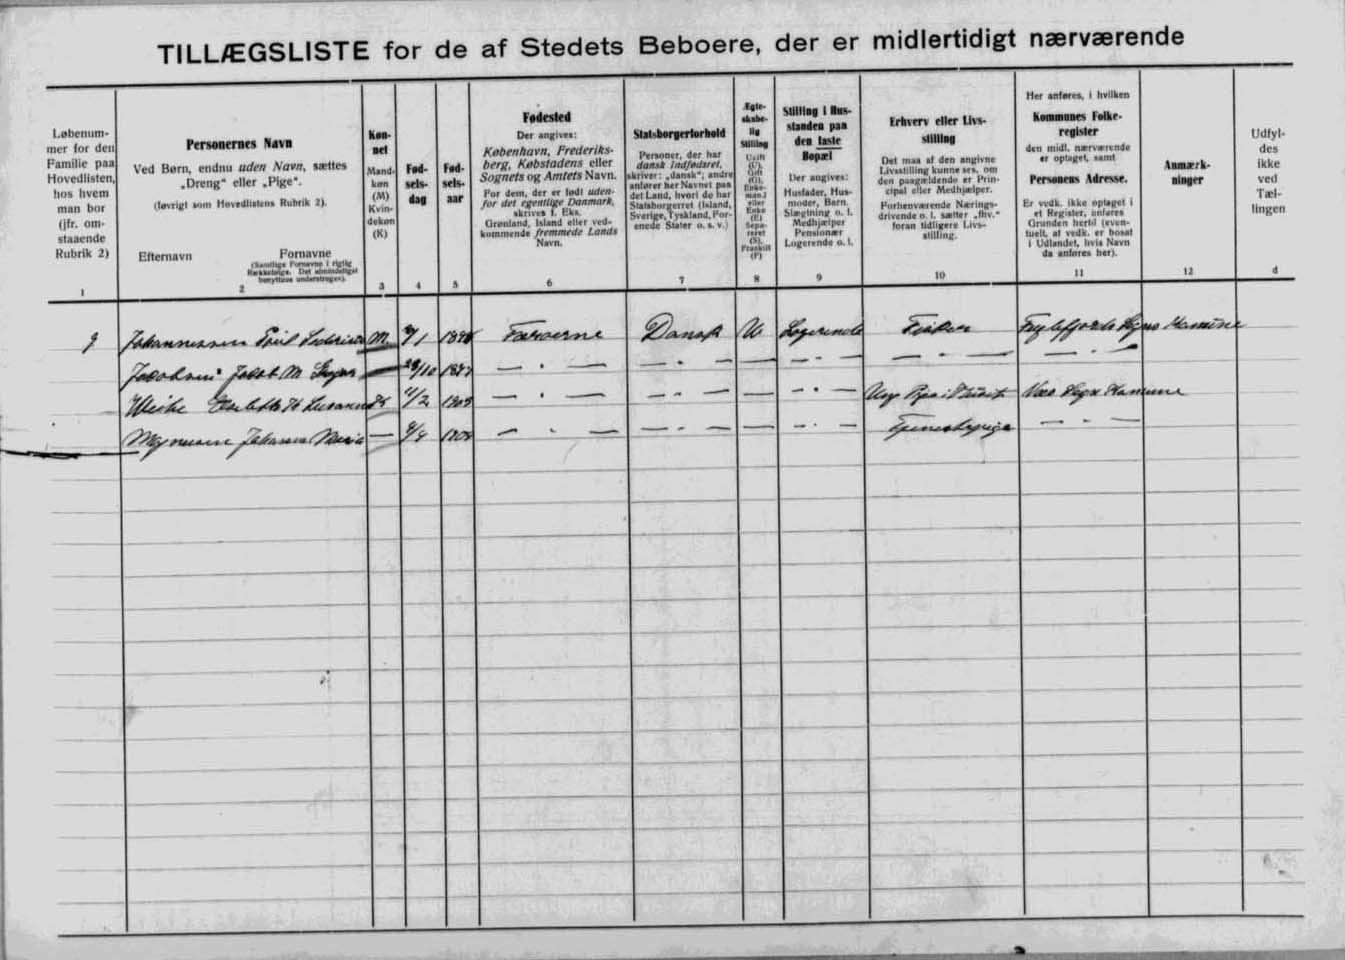 TILLÆGSLISTE for de af Stedets Beboere, der er midlertidigt nærværende
Løbenum-
mer for den
Familie paa
Hovedlisten,
hos hvem
man bor
(jfr. om-
staaende
Rubrik 2)
1
Personernes Navn
Ved Børn, endnu uden Navn, sættes
„Dreng“ eller „Pige“.
(Iøvrigt som Hovedlistens Rubrik 2).
Efternavn
Fornavne
(Samtlige Fornavne i rigtig
Rækkefølge. Det almindeligst
benyttes understreges).
2
Køn-
net
Mand-
køn
(M)
Kvin-
dekøn
(K)
3
Fød-
sels-
dag
4
Fød-
sels-
aar
5
Fødested
Der angives:
København, Frederiks-
berg, Købstadens eller
Sognets og Amtets Navn.
For dem, der er født uden-
for det egentlige Danmark,
skrives f. Eks.
Grønland, Island eller ved-
kommende fremmede Lands
Navn.
6
Statsborgerforhold
Personer, der har
dansk Indfødsret,
skriver: „dansk“; andre
anfører her Navnet paa
det Land, hvori de har
Statsborgerret (Island,
Sverige, Tyskland, For-
enede Stater o. s. v.)
7
Ægte-
skabe-
lig
Stilling
Ugift
(U),
Gift
(G),
Enke-
mand
eller
Enke
(E)
Sepa-
reret
(S),
Fraskilt
(F)
8
Stilling i Hus-
standen paa
den faste
Bopæl
Der angives:
Husfader, Hus-
moder, Barn,
Slægtning o. l.
Medhjælper
Pensionær
Logerende o. l.
9
Erhverv eller Livs-
stilling
Det maa af den angivne
Livsstilling kunne ses, om
den paagældende er Prin-
cipal eller Medhjælper.
Forhenværende Nærings-
drivende o. l. sætter „fhv.“
foran tidligere Livs-
stilling.
10
Her anføres, i hvilken
Kommunes Folke-
register
den midl. nærværende
er optaget, samt
Personens Adresse.
Er vedk. ikke optaget i
et Register, anføres
Grunden hertil (even-
tuelt, at vedk. er bosat
i Udlandet, hvis Navn
da anføres her).
11
Anmærk-
ninger
12
Udfyl-
des
ikke
ved
Tæl-
lingen
d
Johannessen M /1 Færøerne Dansk U Logerende Fisker Sogns Kamune
Jacobsen Jacob M /10 — " — — " — — — " — — " — — " —
/2 — " — — " — — — " — Sogn Kamune
Johanna Maria — — " — — " — — — " — Tjenestepige — " —